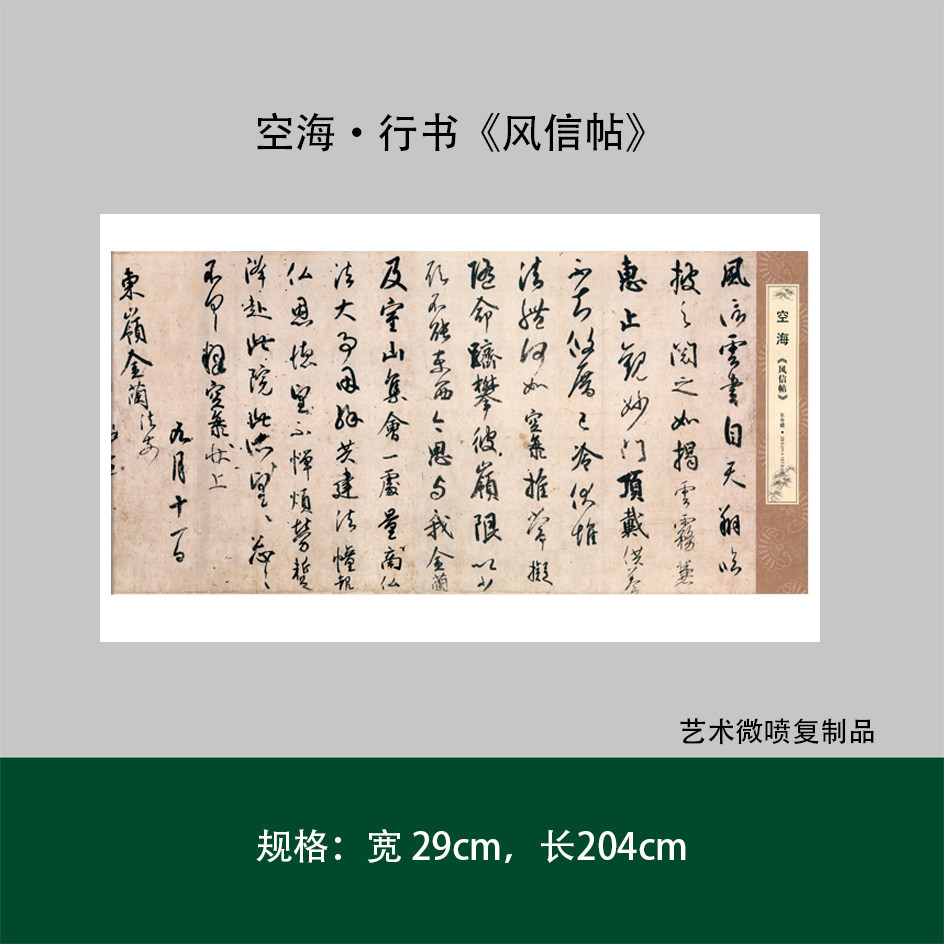 空海·行书《风信帖》
空海《风信帖》
風信雲書自天翔臨
披之閱之如揭雲霧兼
惠止觀妙門頂戴供養
不知攸厝已冷伏惟
法體何如空海推常擬
隨命躋攀彼嶺限以少
願不能東西今思与我金蘭
及室山集會一處量商仏
法大事因緣共建法幢報
仏恩德望不憚煩勞蹔
降赴此院此所望々忩々
不具釋空海状上
九月十一日
東嶺金蘭法前
艺术微喷复制品
规格：宽 29cm，长204cm